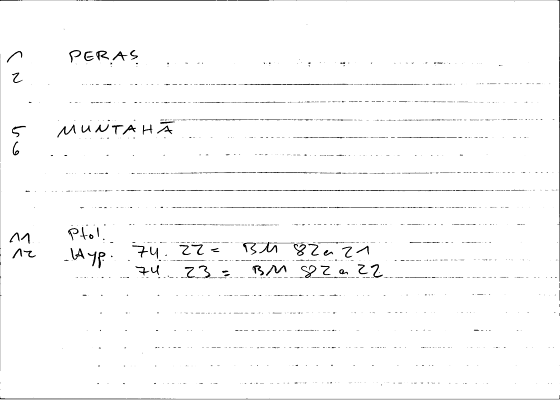 1 PERAS
2
5 MUNTAHĀ
6
11 Ptol.
12 Hyp. 74. 22 = BM 82a 21
74. 23 = BM 82a 22